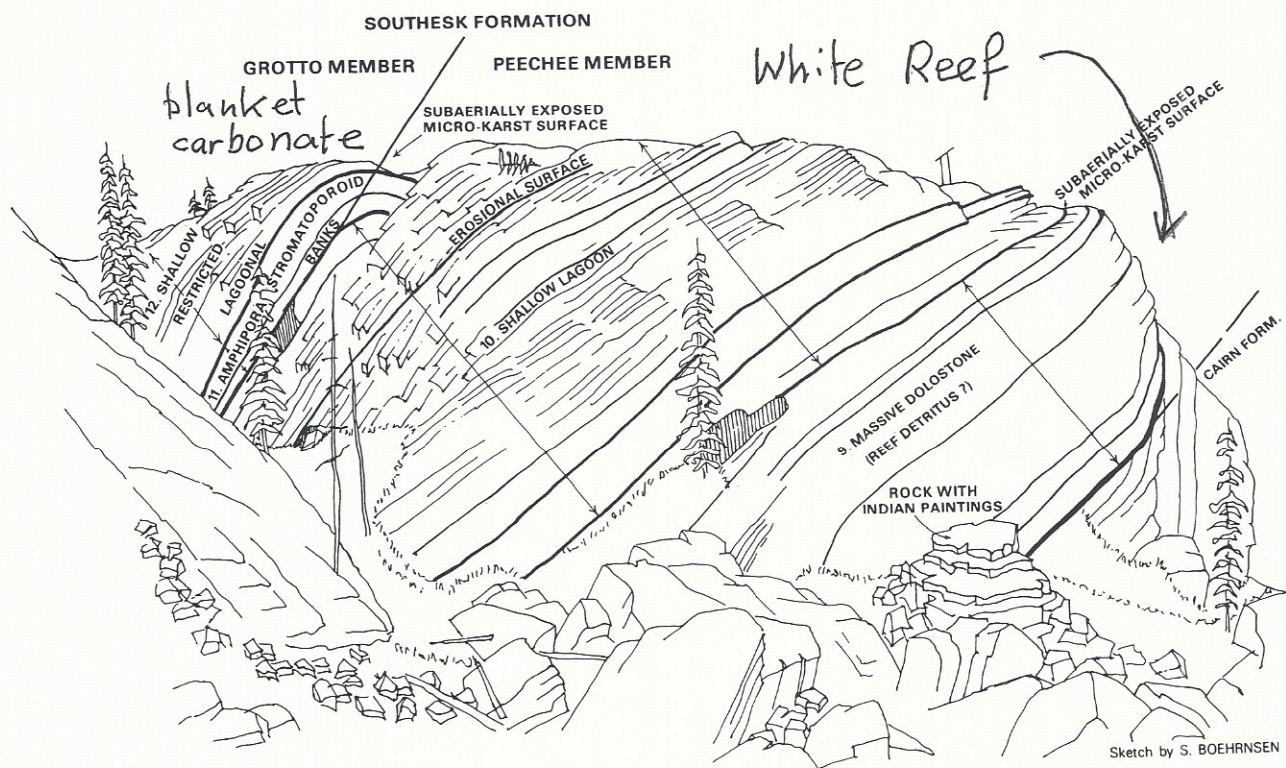 SOUTHESK FORMATION
GROTTO MEMBER
PEECHEE MEMBER
White Reef
blanket
carbonate
SUBAERIALLY EXPOSED
MICRO-KARST SURFACE
SUBAERIALLY EXPOSED
MICRO-KARST SURFACE
EROSIONAL SURFACE
12. SHALLOW
RESTRICTED
LAGOONAL
11. AMPHIPORA STROMATOPOROID
BANKS
10. SHALLOW LAGOON
9. MASSIVE DOLOSTONE
(REEF DETRITUS ?)
CAIRN FORM.
ROCK WITH
INDIAN PAINTINGS
Sketch by S. BOEHRNSEN